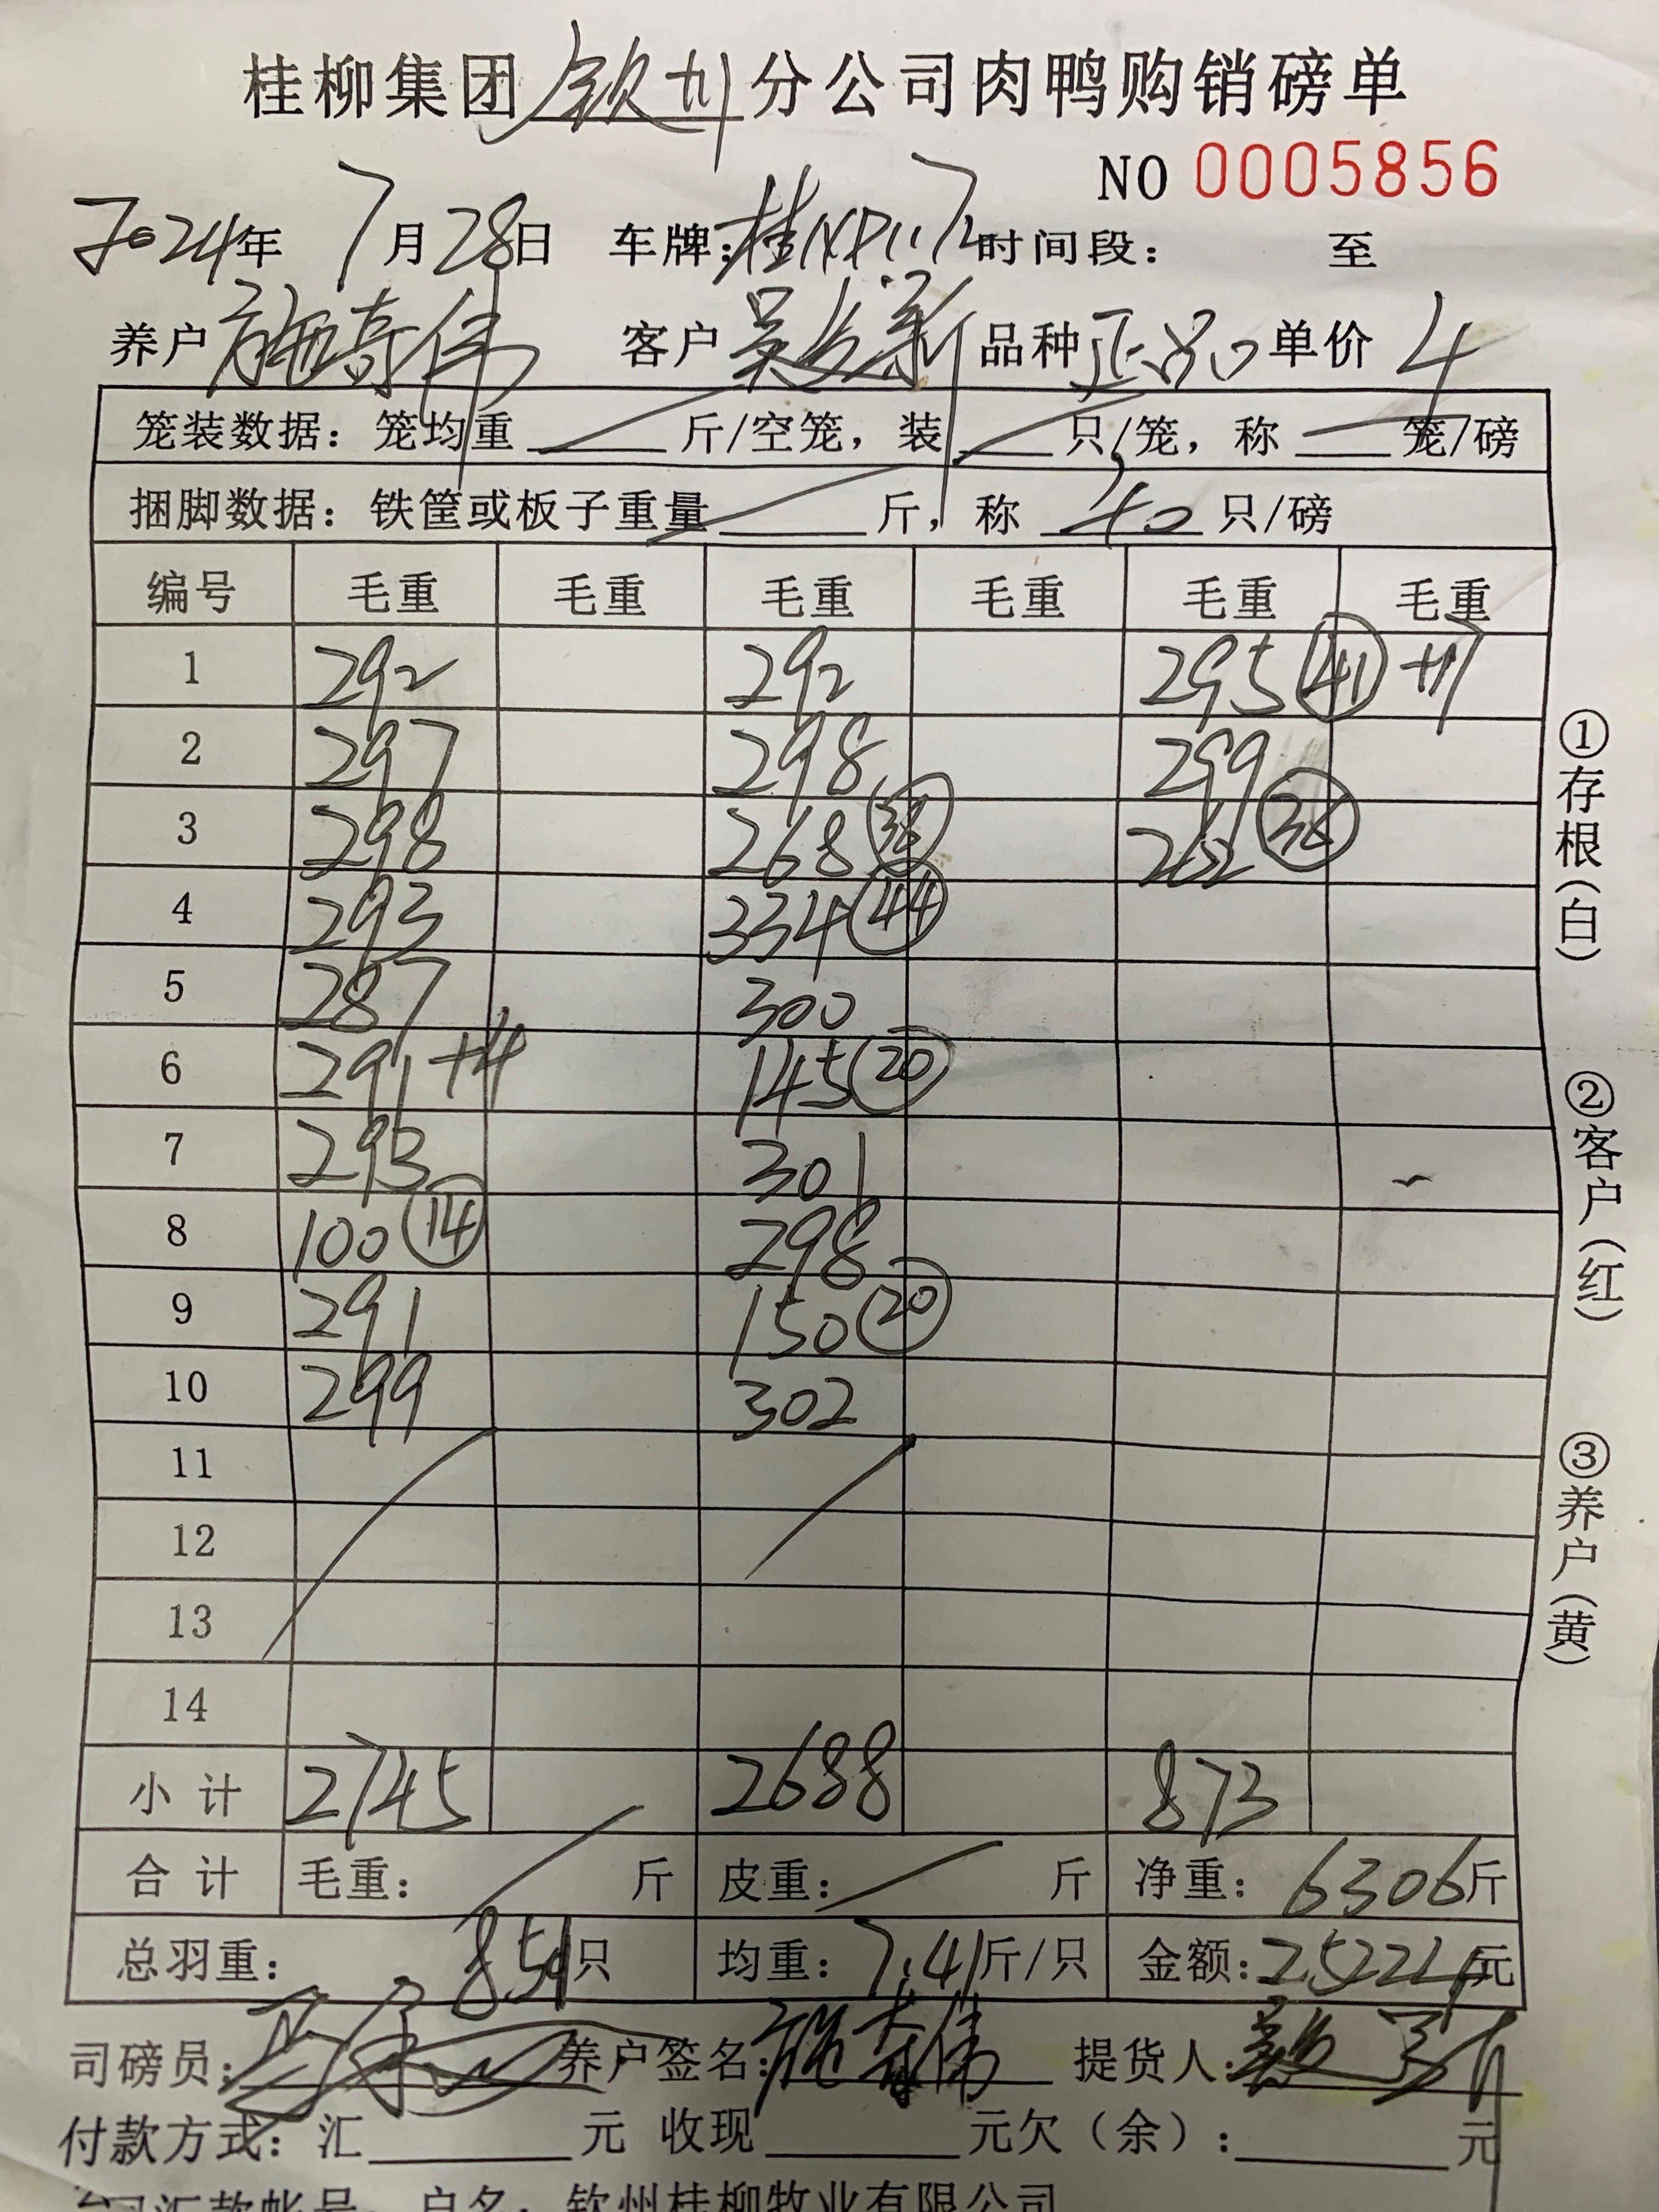 桂柳集团 钦州 分公司肉鸭购销磅单
NO 0005856
2024年 7月28日 车牌: 时间段: 至
养户 施奇伟 客户 吴 新 品种 正品 单价 4
笼装数据: 笼均重 斤/空笼, 装 只/笼, 称 笼/磅
捆脚数据: 铁筐或板子重量 斤, 称 40 只/磅
编号 毛重 毛重 毛重 毛重 毛重 毛重
1 292 292 295 41 +17
2 297 298 299
3 298 268 262 36
4 293 334 44
5 287 300
6 291 +4 145 20
7 293 301
8 100 14 298
9 291 150 20
10 299 302
11
12
13
14
小计 2745 2688 873
合计 毛重: 斤 皮重: 斤 净重: 6306斤
总羽重: 851只 均重: 7.41斤/只 金额: 25224元
司磅员: 养户签名: 施奇伟 提货人:
付款方式: 汇 元 收现 元欠(余): 元
公司汇款帐号: 户名: 钦州桂柳牧业有限公司
①存根(白)
②客户(红)
③养户(黄)